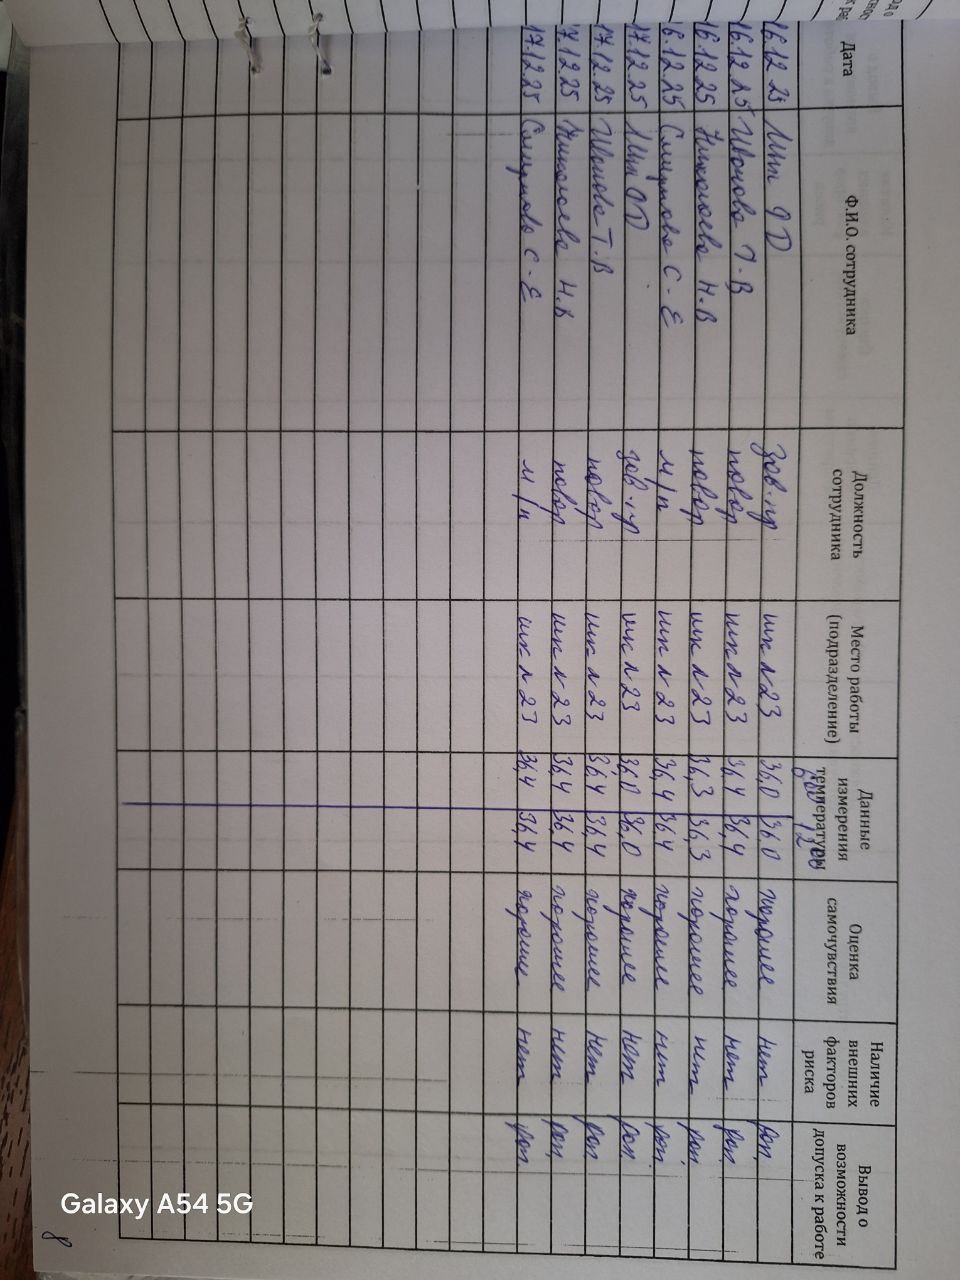 Дата Ф.И.О. сотрудника Должность сотрудника Место работы (подразделение) Данные измерения температуры Оценка самочувствия Наличие внешних факторов риска Вывод о возможности допуска к работе
16.12 25 зав.пр шк л 23 36,0 36 0 хорошее нет
16.12 25 Иванова Т.В повар шк л 23 36,4 36,4 хорошее нет
16.12 25 Николаева Н.В повар шк л 23 36,3 36,3 хорошее нет
16.12.25 Смирнова С.Е м/п шк л 23 36,4 36 4 хорошее нет
17.12.25 зав.пр шк л 23 36,0 36,0 хорошее нет
17.12.25 Иванова Т.В повар шк л 23 36,4 36,4 хорошее нет
17.12.25 Николаева Н.В повар шк л 23 36,4 36,4 хорошее нет
17.12.25 Смирнова С.Е м/п шк л 23 36,4 36,4 хорошее нет
8
Galaxy A54 5G